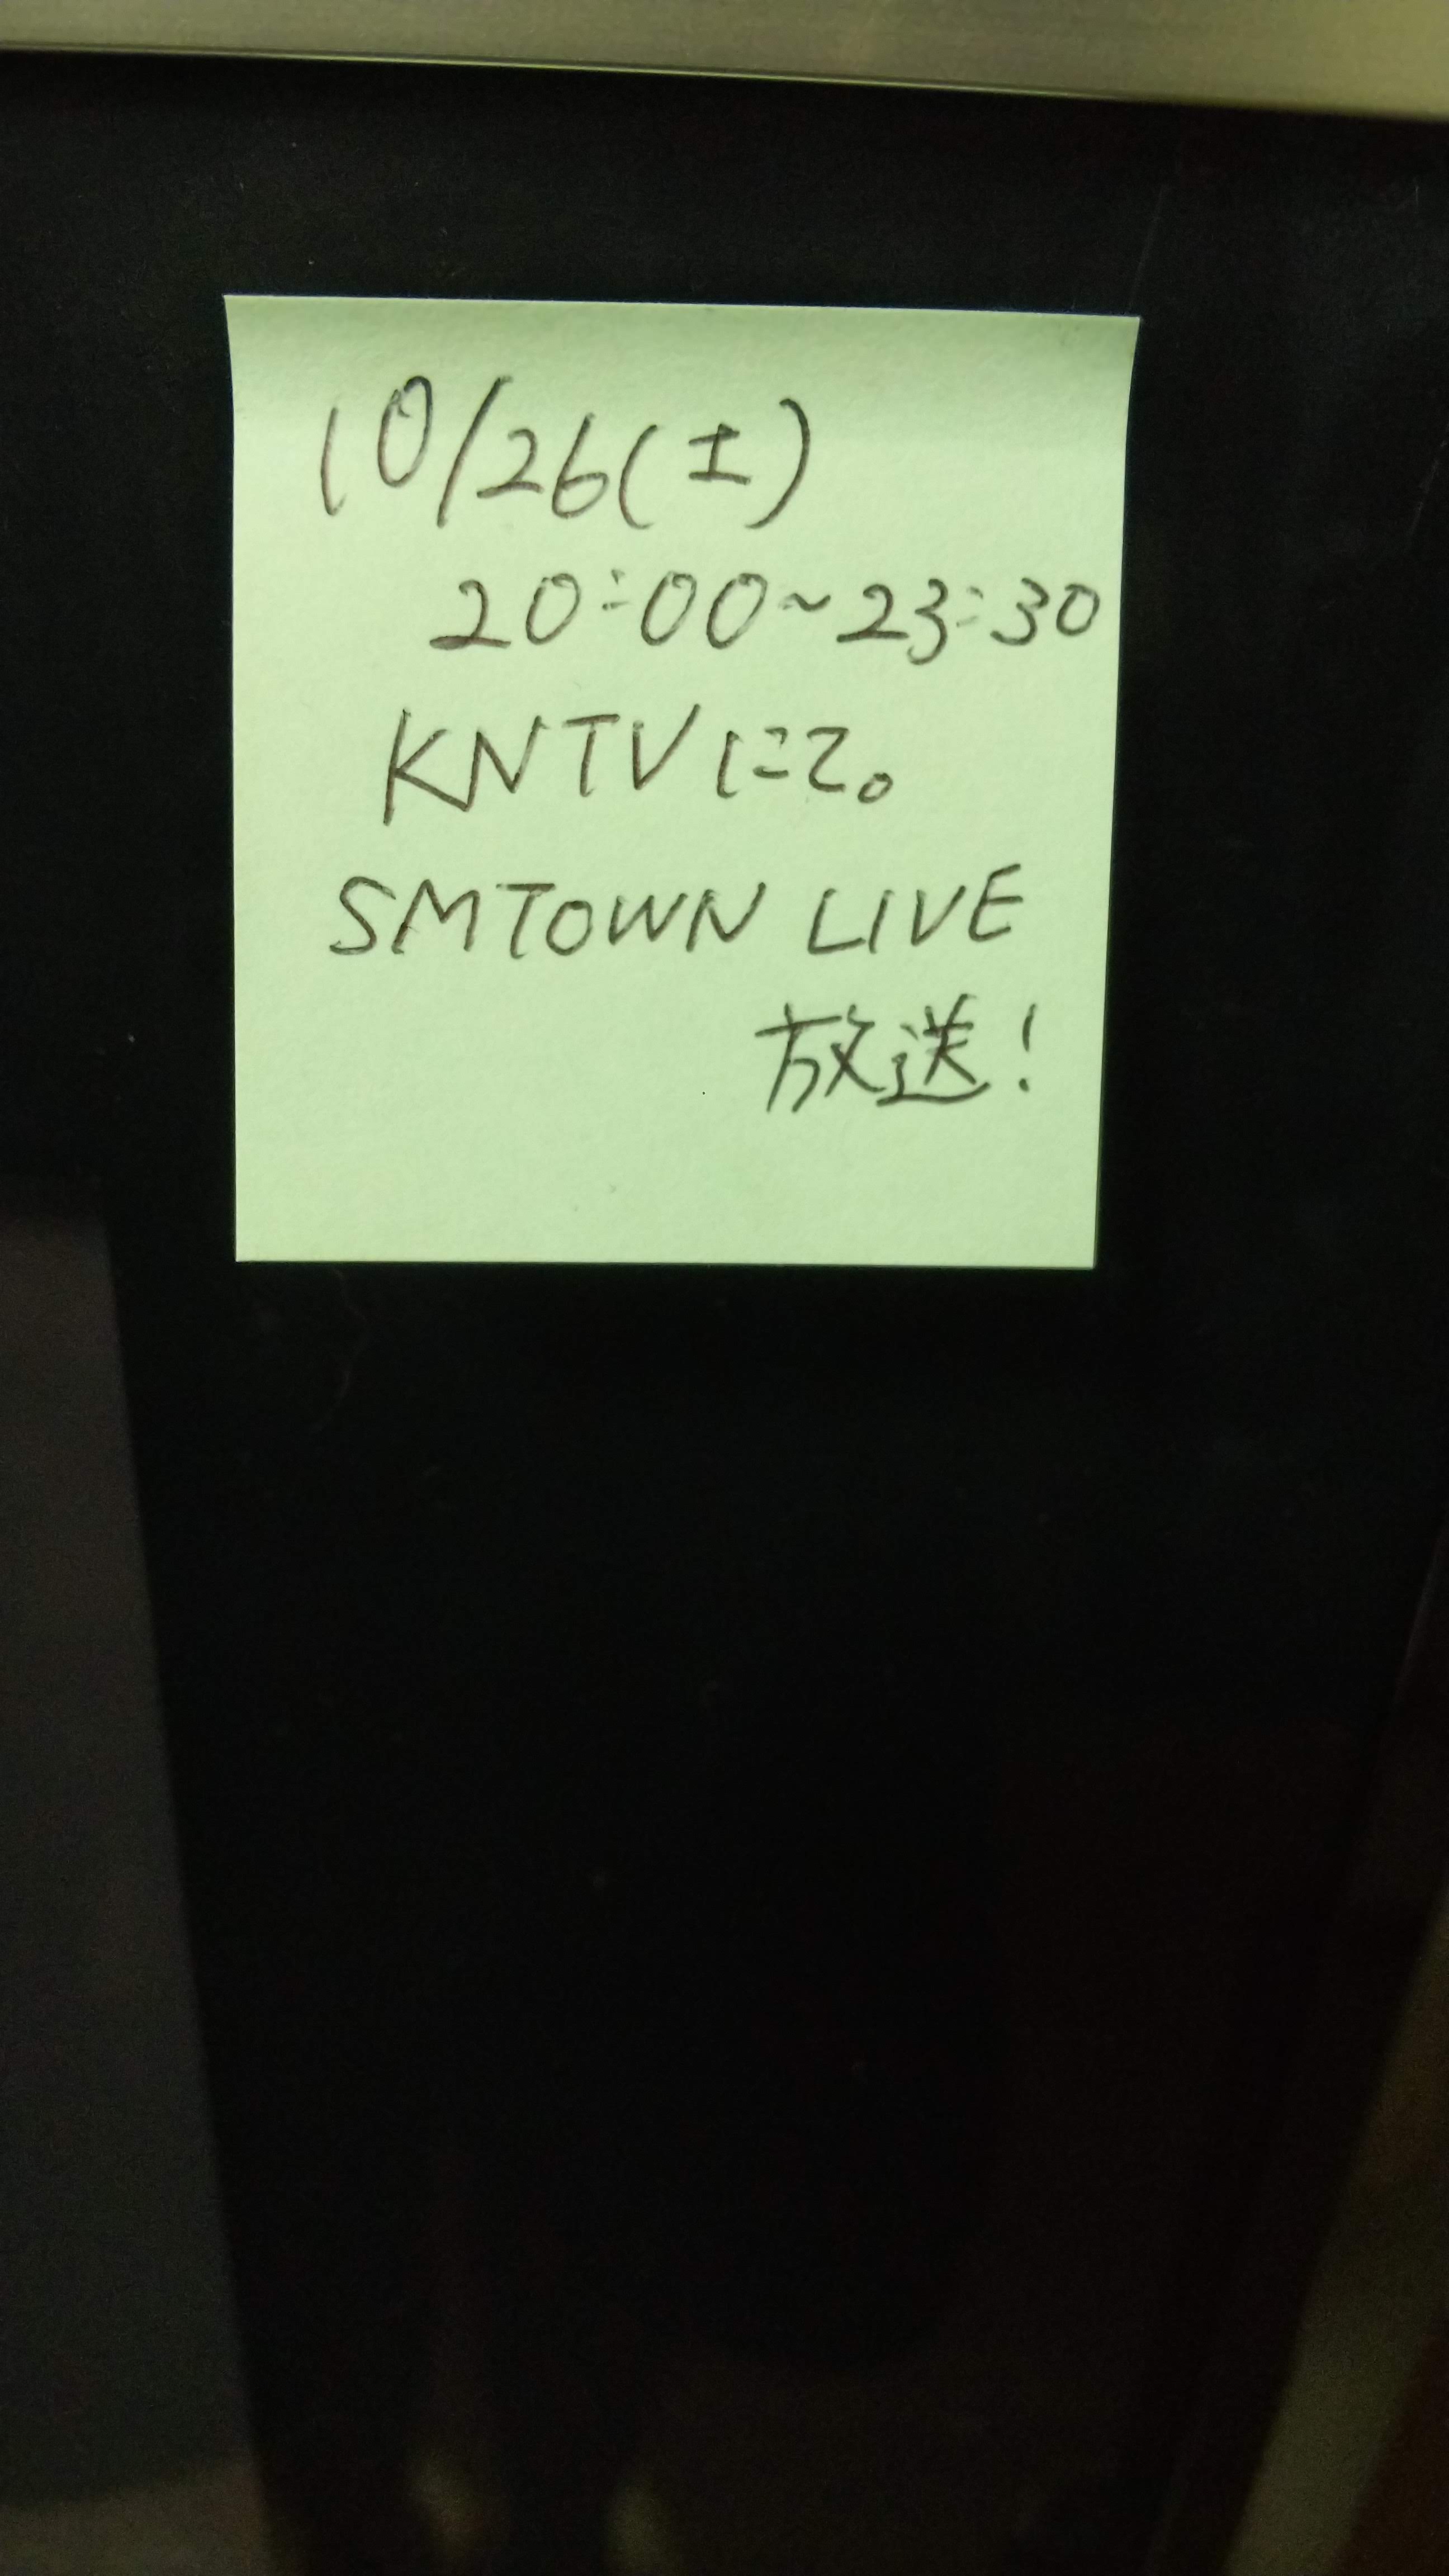 10/26(土)
20:00~23:30
KNTVにて。
SMTOWN LIVE
放送!